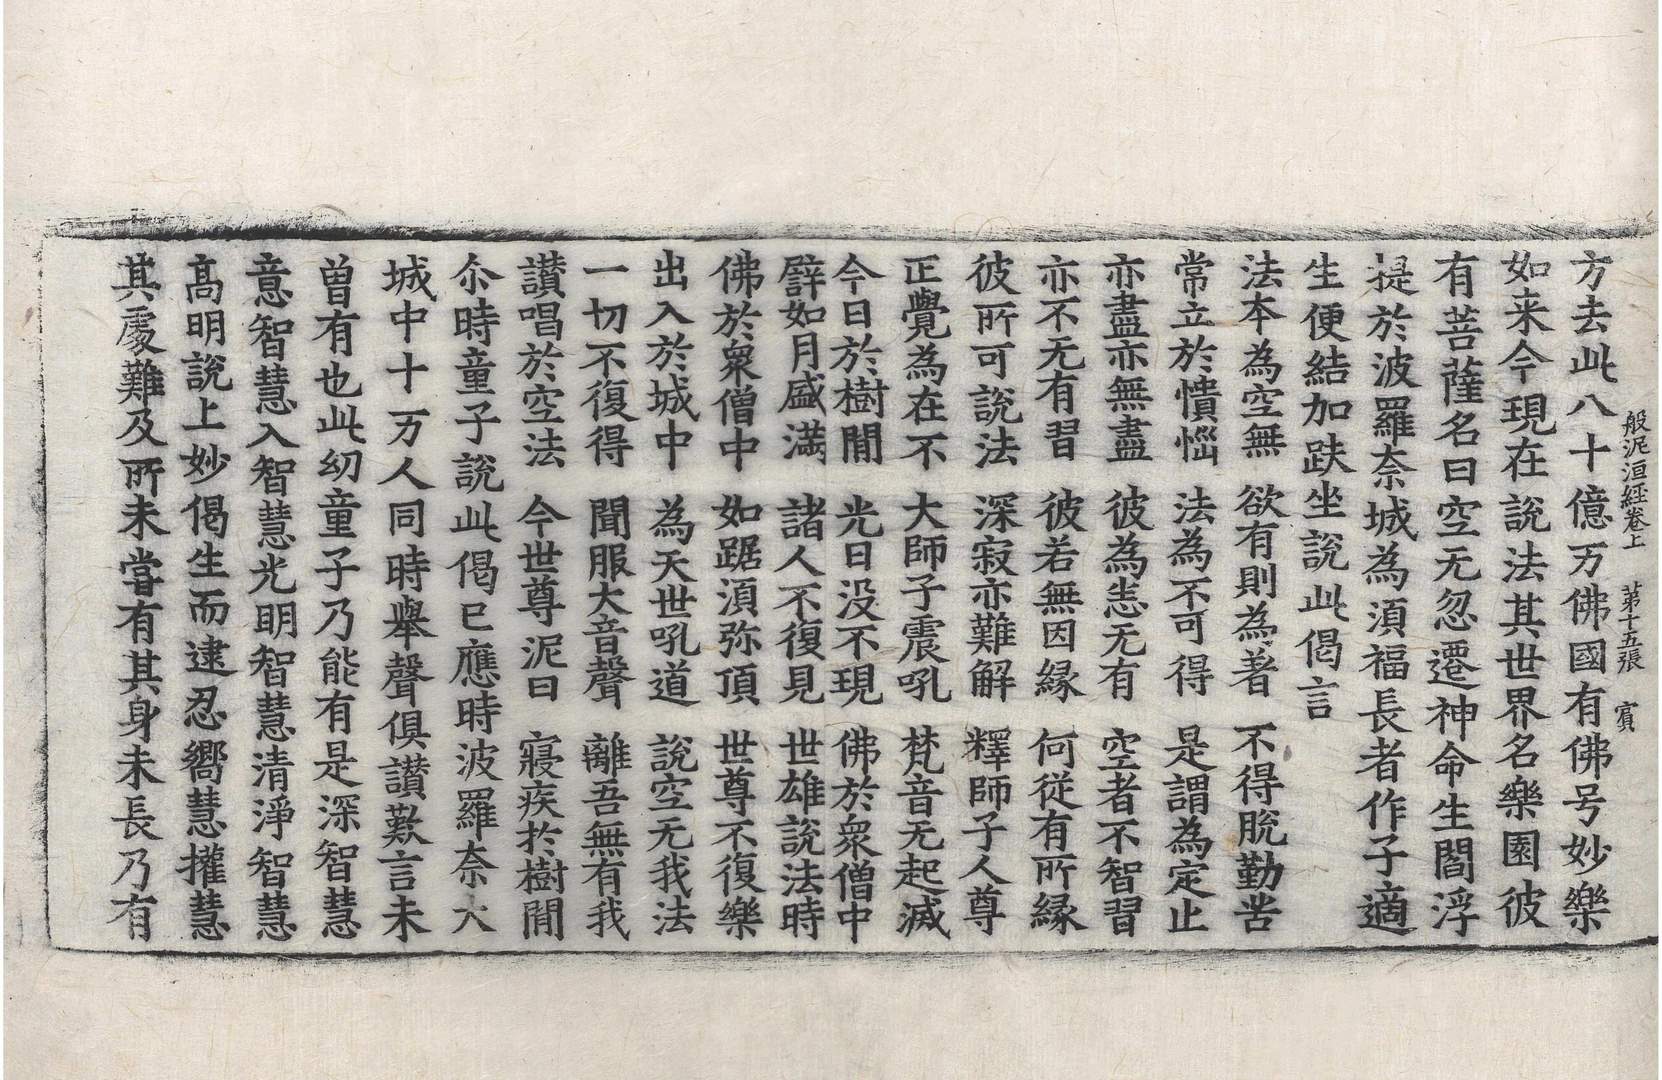 般泥洹経卷上 苐十五張 賔
方去此八十億万佛國有佛号妙樂
如来今現在說法其世界名樂園彼
有菩薩名曰空无忽遷神命生閻浮
提於波羅奈城為湏福長者作子適
生便結加趺坐說此偈言
法本為空無 欲有則為著 不得脫勤苦
常立於憒惱 法為不可得 是謂為定止
亦盡亦無盡 彼為恚无有 空者不智習
亦不无有習 彼若無因緣 何從有所緣
彼所可說法 深寂亦難解 釋師子人尊
正覺為在不 大師子震吼 梵音无起滅
今日於樹間 光日没不現 佛於衆僧中
譬如月盛滿 諸人不復見 世雄說法時
佛於衆僧中 如踞湏弥頂 世尊不復樂
出入於城中 為天世吼道 說空无我法
一切不復得 聞服大音聲 離吾無有我
讃唱於空法 今世尊泥曰 寢疾於樹間
尒時童子說此偈已應時波羅奈大
城中十万人同時舉聲俱讃歎言未
曽有也此幼童子乃能有是深智慧
意智慧入智慧光明智慧清淨智慧
髙明說上妙偈生而逮忍嚮慧攉慧
其處難及所未甞有其身未長乃有